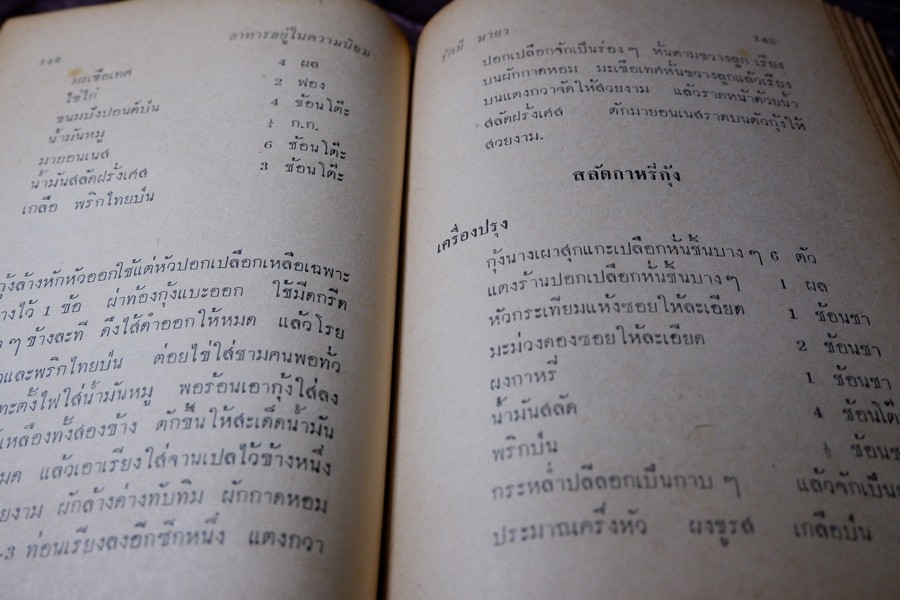 อาหารอยู่ในความนิยม
มะเขือเทศ 4 ผล
ไข่ไก่ 2 ฟอง
ขนมปังปอนด์ป่น 4 ช้อนโต๊ะ
น้ำมันหมู ก.ก.
มายอนเนส 6 ช้อนโต๊ะ
น้ำมันสลัดฝรั่งเศส 3 ช้อนโต๊ะ
เกลือ พริกไทยป่น
กุ้งล้างหักหัวออกใช้แต่หัวปอกเปลือกเหลือเฉพาะ
างไว้ 1 ข้อ ผ่าท้องกุ้งแบะออก ใช้มีดกรีด
ๆ ข้างละที ดึงไส้ดำออกให้หมด แล้วโรย
และพริกไทยป่น ต่อยไข่ใส่ชามคนพอทั่ว
ทะตั้งไฟใส่น้ำมันหมู พอร้อนเอากุ้งใส่ลง
เหลืองทั้งสองข้าง ตักขึ้นให้สะเด็ดน้ำมัน
มด แล้วเอาเรียงใส่จานเปลไว้ข้างหนึ่ง
ยงาม ผักล้างด่างทับทิม ผักกาดหอม
-3 ท่อนเรียงลงอีกซีกหนึ่ง แตงกวา
รัศมี มายา 143
ปอกเปลือกจักเป็นร่อง ๆ หั่นตามขวางลูก เรียง
บนผักกาดหอม มะเขือเทศหั่นขวางลูกแล้วเรียง
บนแตงกวาจัดให้สวยงาม แล้วราดหน้าด้วยน้ำ
สลัดฝรั่งเศส ตักมายอนเนสราดบนตัวกุ้งให้
สวยงาม.
สลัดกาหรี่กุ้ง
เครื่องปรุง
กุ้งนางเผาสุกแกะเปลือกหั่นชิ้นบาง ๆ 6 ตัว
แตงร้านปอกเปลือกหั่นชิ้นบาง ๆ 1 ผล
หัวกระเทียมแห้งซอยให้ละเอียด 1 ช้อนชา
มะม่วงดองซอยให้ละเอียด 2 ช้อนชา
ผงกาหรี่ 1 ช้อนชา
น้ำมันสลัด 4 ช้อนโต๊
พริกป่น ช้อนช
กระหล่ำปลีลอกเป็นกาบ ๆ แล้วจักเป็น
ประมาณครึ่งหัว ผงชูรส เกลือป่น